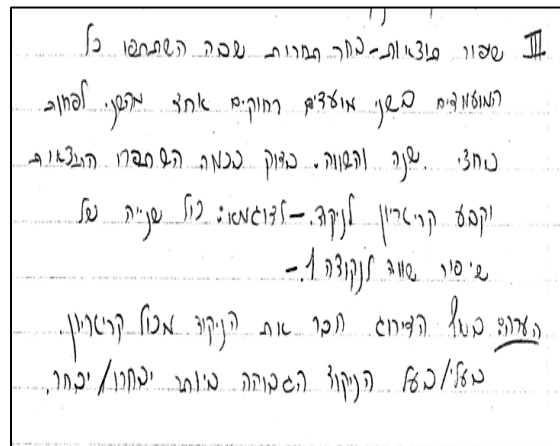 III שפור תוצאות - בחר תחרות שבה השתתפו כל
המועמדים בשני מועדים רחוקים אחד מהשני לפחות
כחצי שנה והשווה. בדוק בכמה השתפרו התוצאות
וקבע קריטריון לניקוד. - לדוגמא: כול שנייה של
שיפור שווה לנקודה 1. -
הערה: בסוף הדירוג חבר את הניקוד מכול קריטריון.
בעלי/בעל הניקוד הגבוהה ביותר יבחרו/יבחר.